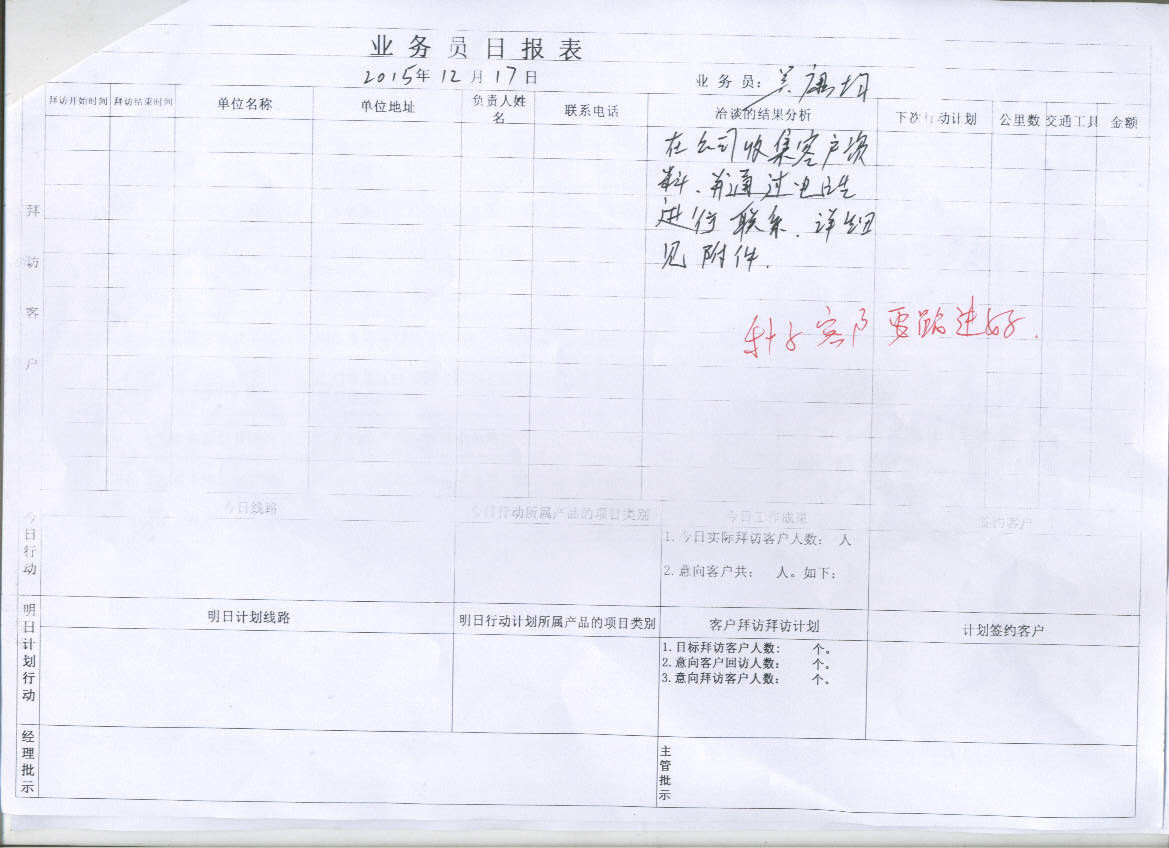 业务员日报表
2015年12月17日
业务员：吴
拜访开始时间 拜访结束时间 单位名称 单位地址 负责人姓名 联系电话 洽谈的结果分析 下次行动计划 公里数 交通工具 金额
拜访客户
在公司收集客户资
料、并通过电话
进行联系、详细
见附件.
客户要跟进好.
今日行动
今日线路 今日行动所属产品的项目类别 今日工作成果 签约客户
1.今日实际拜访客户人数： 人
2.意向客户共： 人。如下：
明日计划行动
明日计划线路 明日行动计划所属产品的项目类别 客户拜访拜访计划 计划签约客户
1.目标拜访客户人数： 个。
2.意向客户回访人数： 个。
3.意向拜访客户人数： 个。
经理批示 主管批示